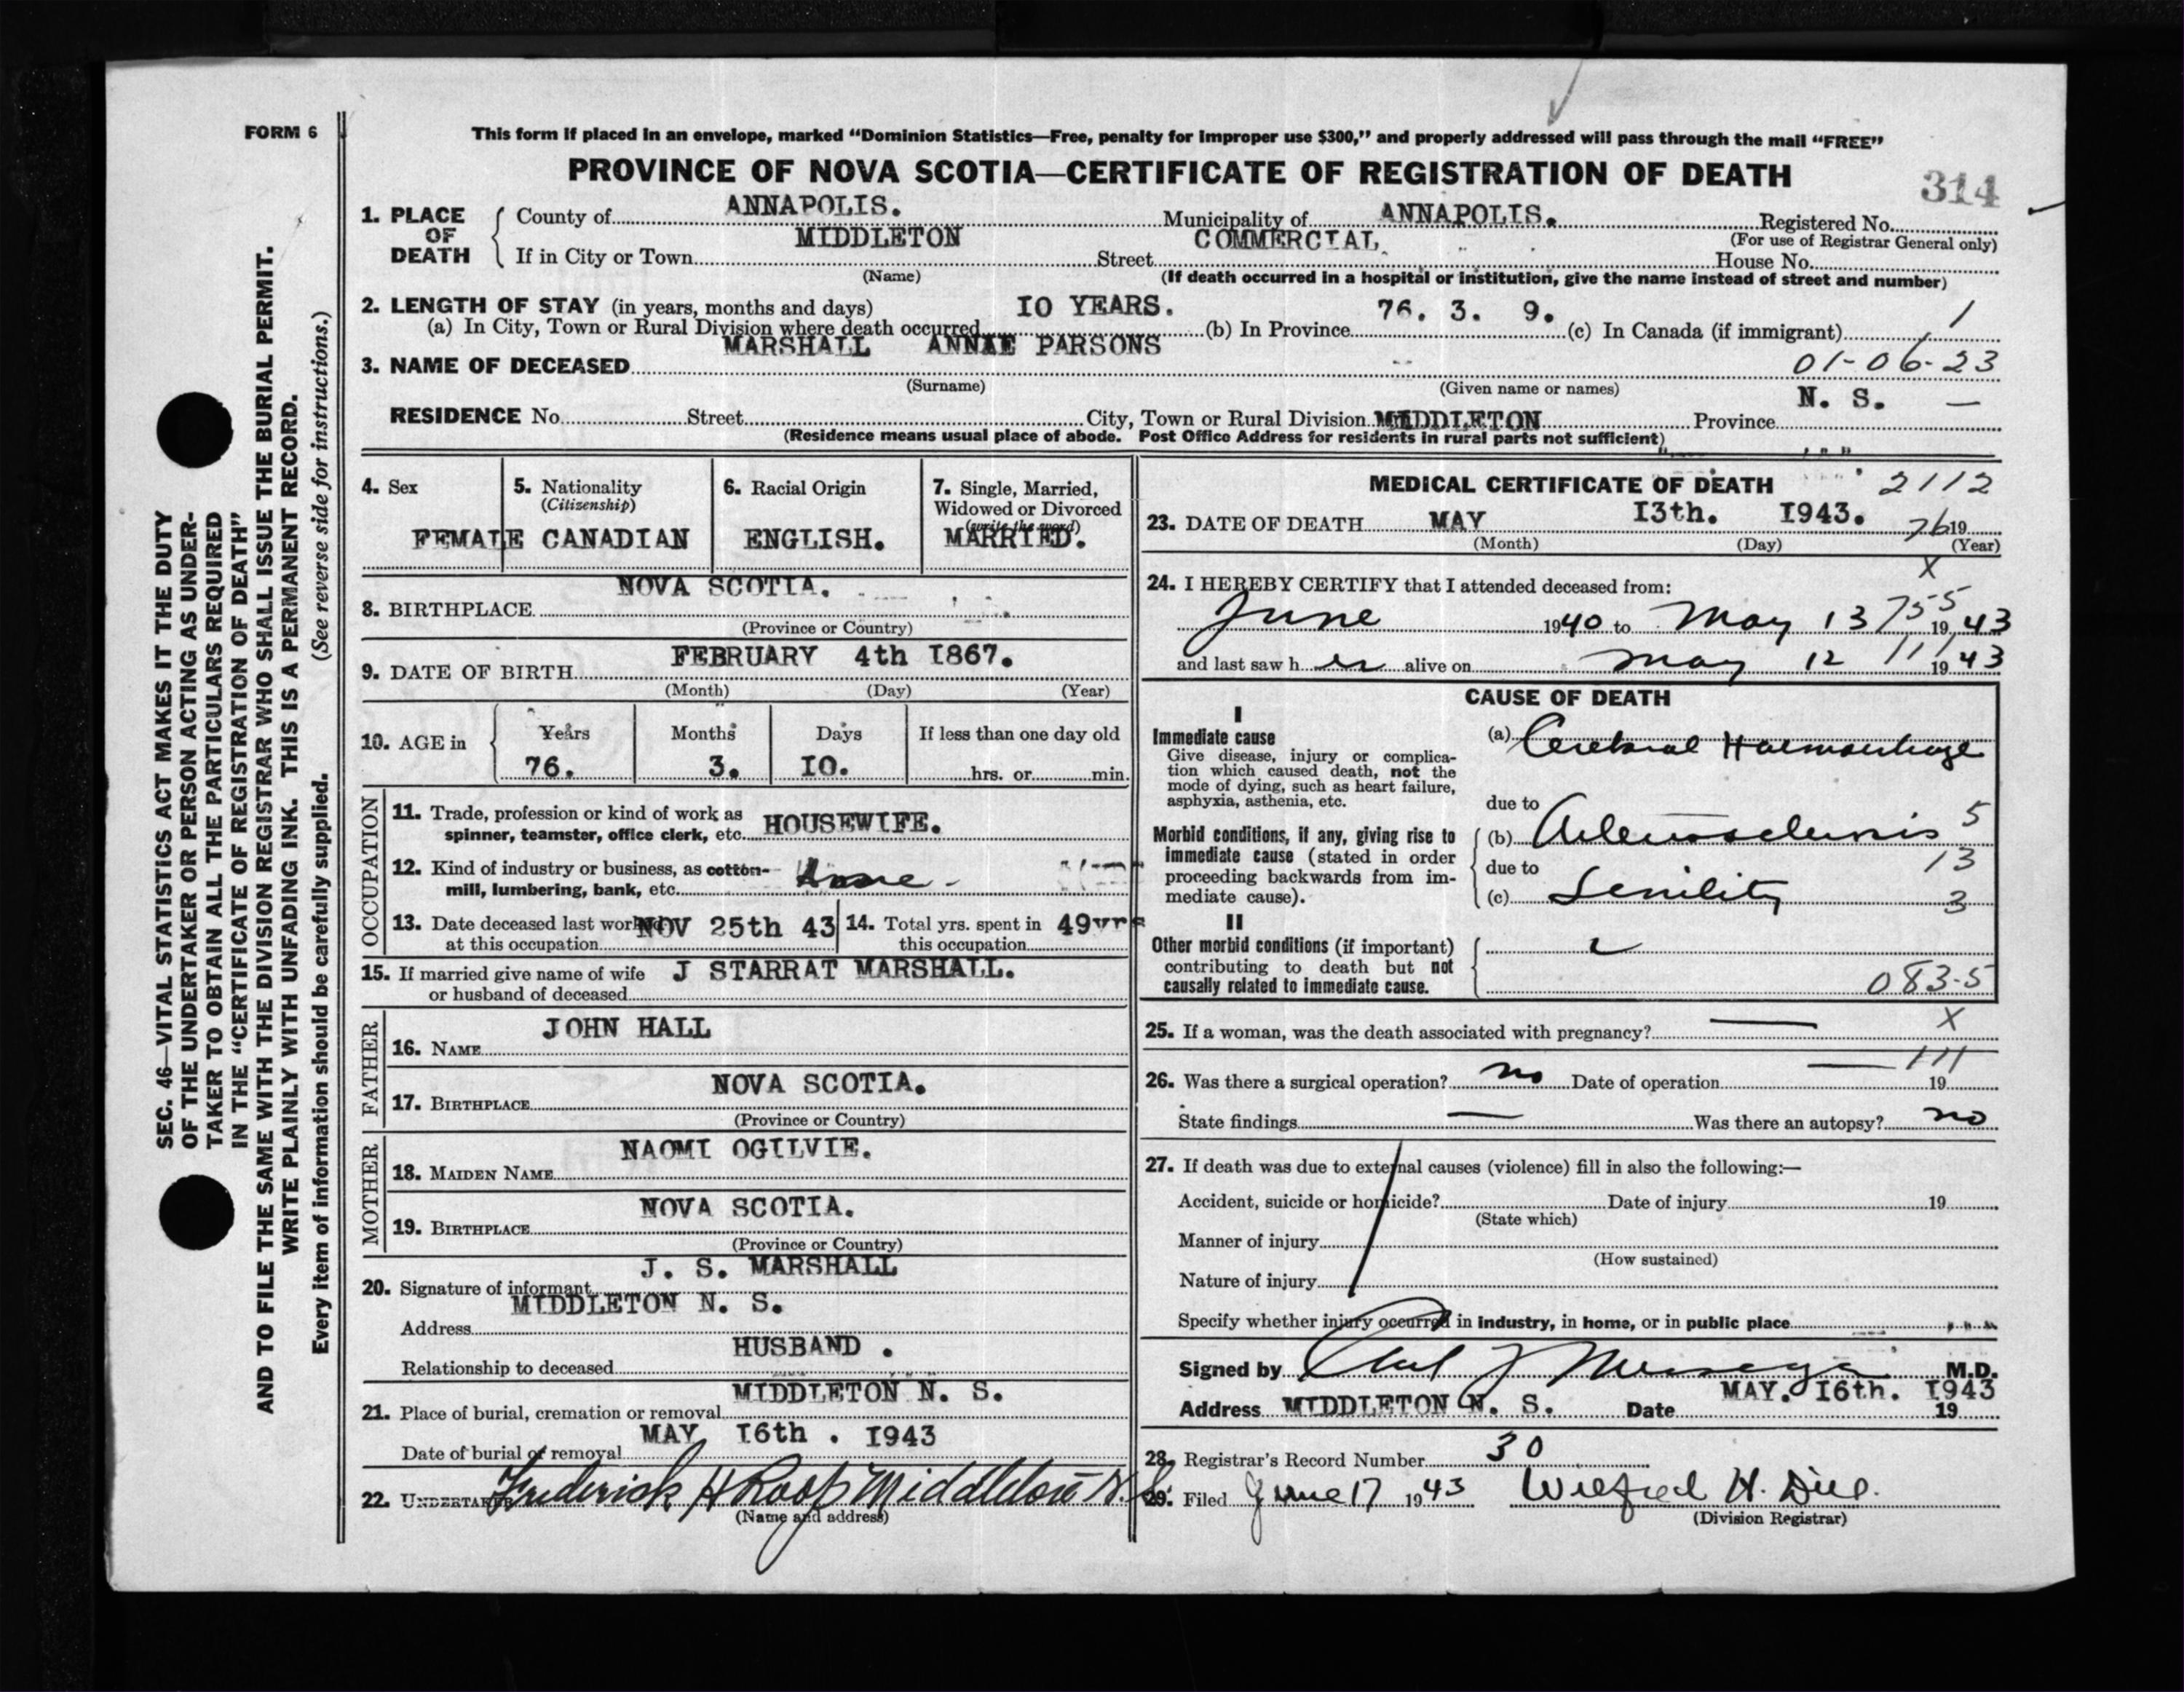 FORM 6
This form if placed in an envelope, marked “Dominion Statistics—Free, penalty for improper use $300,” and properly addressed will pass through the mail “FREE”
PROVINCE OF NOVA SCOTIA—CERTIFICATE OF REGISTRATION OF DEATH
314
1. PLACE OF DEATH County of ANNAPOLIS. Municipality of ANNAPOLIS. Registered No.
(For use of Registrar General only)
If in City or Town MIDDLETON Street COMMERCIAL House No.
(Name) (If death occurred in a hospital or institution, give the name instead of street and number)
2. LENGTH OF STAY (in years, months and days)
(a) In City, Town or Rural Division where death occurred 10 YEARS. (b) In Province 76. 3. 9. (c) In Canada (if immigrant) 1
3. NAME OF DECEASED MARSHALL ANNIE PARSONS 01-06-23
(Surname) (Given name or names)
RESIDENCE No. Street City, Town or Rural Division MIDDLETON Province N. S. —
(Residence means usual place of abode. Post Office Address for residents in rural parts not sufficient)
4. Sex FEMALE
5. Nationality (Citizenship) CANADIAN
6. Racial Origin ENGLISH.
7. Single, Married, Widowed or Divorced (write the word) MARRIED.
8. BIRTHPLACE NOVA SCOTIA.
(Province or Country)
9. DATE OF BIRTH FEBRUARY 4th 1867.
(Month) (Day) (Year)
10. AGE in Years Months Days If less than one day old
76. 3. 10. hrs. or min.
OCCUPATION
11. Trade, profession or kind of work as
spinner, teamster, office clerk, etc. HOUSEWIFE.
12. Kind of industry or business, as cotton-
mill, lumbering, bank, etc.
13. Date deceased last worked
at this occupation NOV 25th 43
14. Total yrs. spent in
this occupation 49yrs
15. If married give name of wife
or husband of deceased J STARRAT MARSHALL.
FATHER
16. NAME JOHN HALL
17. BIRTHPLACE NOVA SCOTIA.
(Province or Country)
MOTHER
18. MAIDEN NAME NAOMI OGILVIE.
19. BIRTHPLACE NOVA SCOTIA.
(Province or Country)
20. Signature of informant J. S. MARSHALL
Address MIDDLETON N. S.
Relationship to deceased HUSBAND .
21. Place of burial, cremation or removal MIDDLETON N. S.
Date of burial or removal MAY 16th . 1943
22. UNDERTAKER Frederick H Roop Middleton N.S.
(Name and address)
MEDICAL CERTIFICATE OF DEATH 2112
23. DATE OF DEATH MAY 13th. 1943. 76 19
(Month) (Day) (Year)
X
24. I HEREBY CERTIFY that I attended deceased from:
June 1940 to May 13 1943
755
and last saw her alive on May 12 1943
111
CAUSE OF DEATH
I
Immediate cause
Give disease, injury or complica-
tion which caused death, not the
mode of dying, such as heart failure,
asphyxia, asthenia, etc.
(a) Cerebral Haemorrhage
due to
Morbid conditions, if any, giving rise to
immediate cause (stated in order
proceeding backwards from im-
mediate cause).
(b) Arteriosclerosis 5
due to 13
(c) Senility 3
II
Other morbid conditions (if important)
contributing to death but not
causally related to immediate cause.
083-5
25. If a woman, was the death associated with pregnancy? — X
111
26. Was there a surgical operation? no Date of operation — 19
State findings — Was there an autopsy? no
27. If death was due to external causes (violence) fill in also the following:—
Accident, suicide or homicide? Date of injury 19
(State which)
Manner of injury
(How sustained)
Nature of injury
Specify whether injury occurred in industry, in home, or in public place
Signed by M.D.
Address MIDDLETON N. S. Date MAY. 16th. 1943 19
28. Registrar's Record Number 30
29. Filed June 17 1943 Wilfred H. Dill.
(Division Registrar)
SEC. 46—VITAL STATISTICS ACT MAKES IT THE DUTY
OF THE UNDERTAKER OR PERSON ACTING AS UNDER-
TAKER TO OBTAIN ALL THE PARTICULARS REQUIRED
IN THE “CERTIFICATE OF REGISTRATION OF DEATH”
AND TO FILE THE SAME WITH THE DIVISION REGISTRAR WHO SHALL ISSUE THE BURIAL PERMIT.
WRITE PLAINLY WITH UNFADING INK. THIS IS A PERMANENT RECORD.
Every item of information should be carefully supplied. (See reverse side for instructions.)